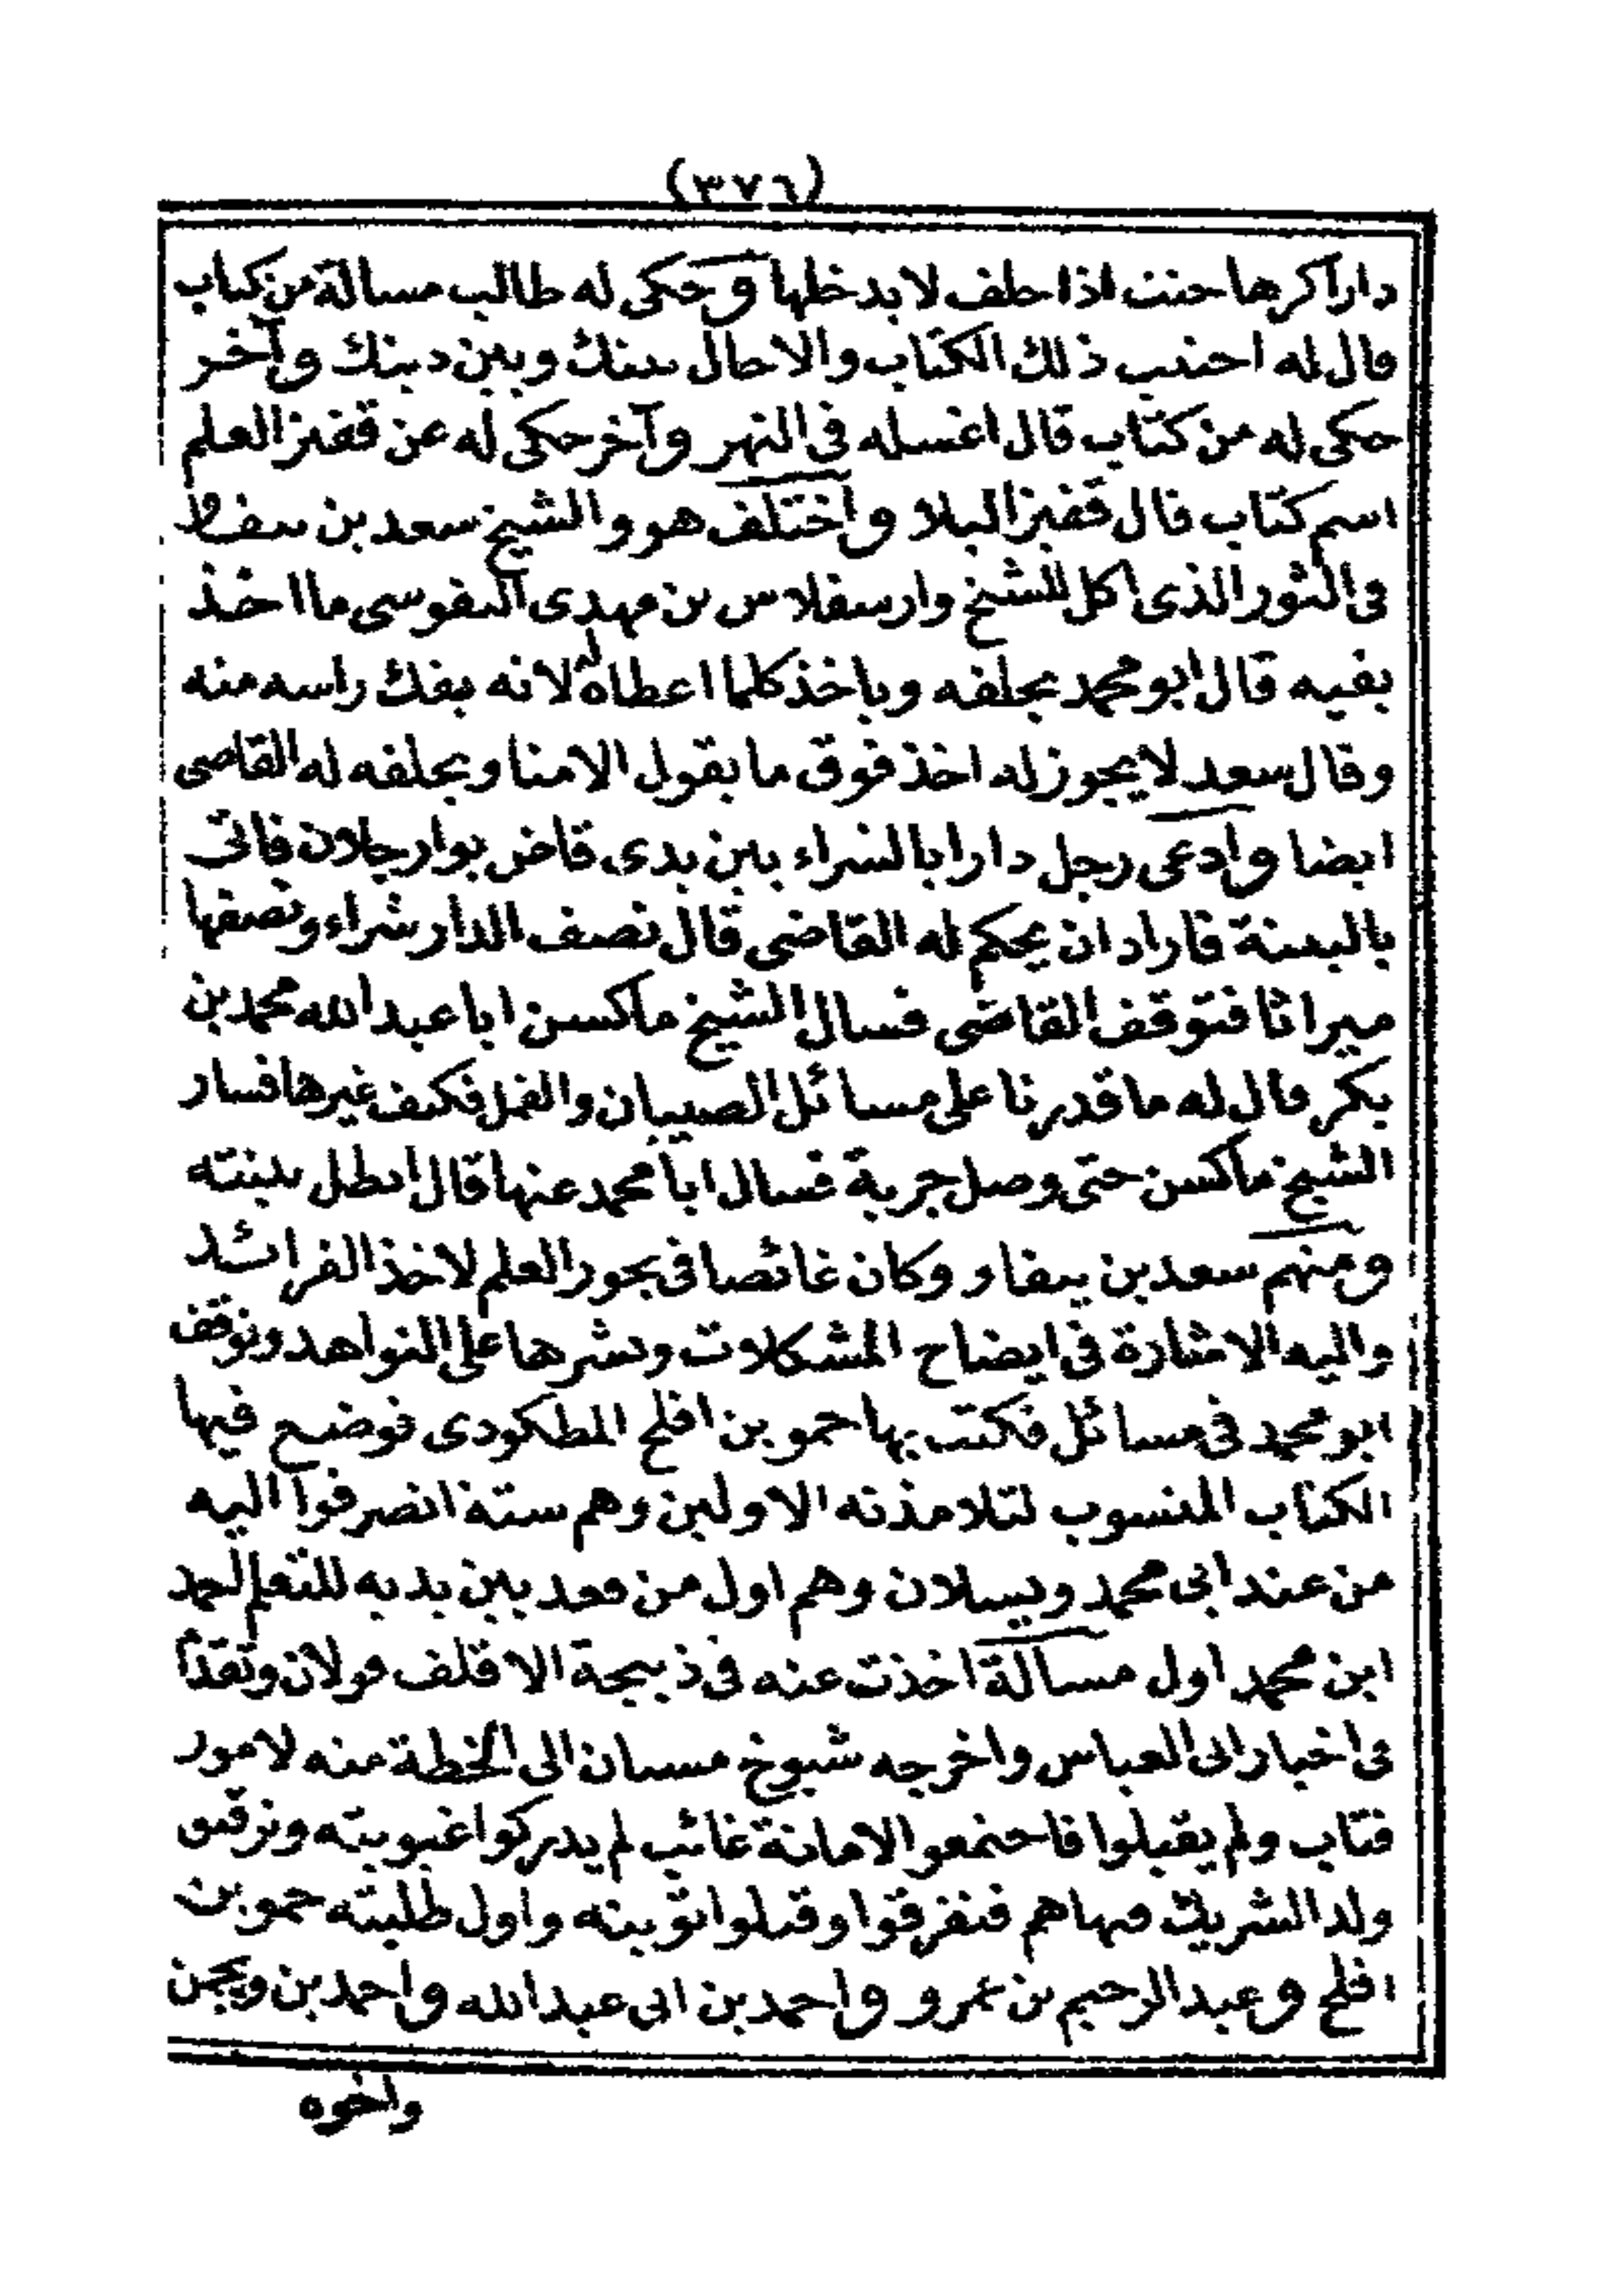 (٣٧٦)
دارا كرها حنث اذا حلف لا يدخلها وحكى له طالب مسالة من كتاب
قال له اجتنب ذلك الكتاب والا حال بينك وبين دينك وآخر
حكى له من كتاب قال اغسله فى النهر وآخر حكى له عن قفيز العلم
اسم كتاب قال قفيز البلا واختلف هو والشيخ سعد بن
فى الثور الذى اكل للشيخ وارسفلاس بن مهدى النفوسى ما اخذ
بفيه قال ابو محمد يحلفه وياخذ كلما اعطاه له لانه يفك راسه منه
وقال سعد لا يجوز له اخذ فوق ما يقول الامنا ويحلفه له القاضى
ايضا وادعى رجل دارا بالشراء بين يدى قاض بوارجلان فاتى
بالبينة فاراد ان يحكم له القاضى قال نصف الدار شراء ونصفها
ميراثا فتوقف القاضى فسال الشيخ ماكسن ابا عبد الله محمد بن
بكر قال له ما قدرنا على مسائل الصبيان والنمل فكيف غيرها فسار
الشيخ ماكسن حتى وصل جربة فسال ابا محمد عنها قال ابطل بينته
ومنهم سعد بن ييفاو وكان غائصا فى بحور العلم لاخذ الفرائد
واليه الاشارة فى ايضاح المشكلات ونشرها على النواهد وتوقف
ابو محمد فى مسائل فكتب بها حمو بن افلح المطكودى فوضح فيها
الكتاب المنسوب لتلامذته الاولين وهم ستة انصرفوا اليه
من عند ابى محمد ويسلان وهم اول من قعد بين يديه للتعلم احمد
ابن محمد اول مسالة اخذت عنه فى ذبيحة الاقلف قولان وتقدما
فى اخبار ابى العباس واخرجه شيوخ مسنان الى الخطة منه لامور
فتاب ولم يقبلوا فاجتمعوا الامانة غائب لم يدركوا غيوبيته وتوقف
ولد الشريك فهاهم فتفرقوا وقبلوا توبته واول طلبته حمو بن
افلح وعبد الرحيم بن عمرو واحمد بن ابى عبد الله واحمد بن ويجمن
واخوه